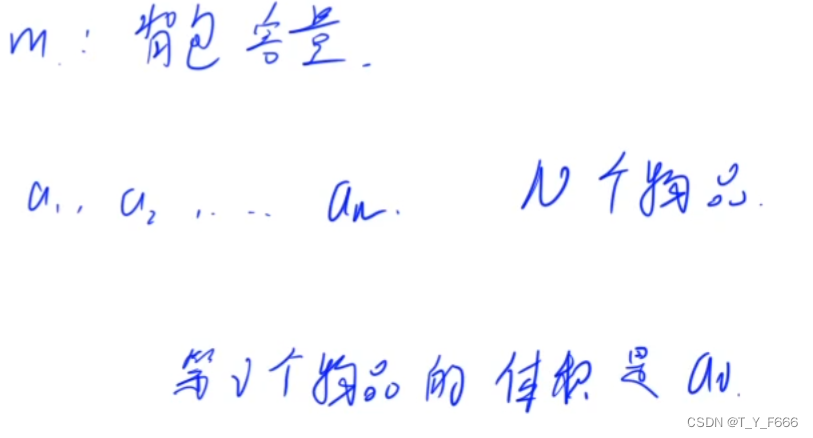 m: 背包容量.
a₁, a₂, .... aₙ. N个物品.
第i个物品的体积是 aᵢ.
CSDN @T_Y_F666